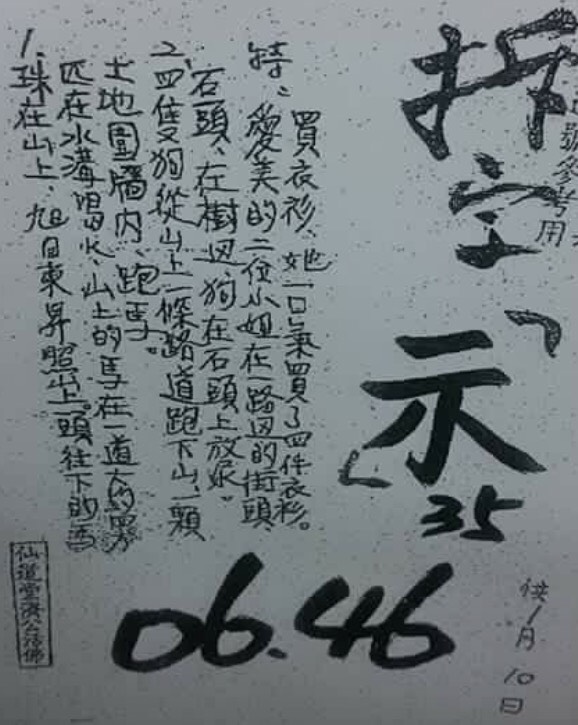 號參考用
拆字、
「示」
35
1.珠在山上、旭日東昇照山上。一頭往下的馬
匹在水溝喝水、山上的馬在一道大的
土地圍牆內、跑馬。
二、四隻狗從山上一條路道跑下山、一顆
石頭、在樹边狗在石頭上放尿。
特、愛美的二位小姐在一路边的街頭
買衣衫、她一口氣買了四件衣衫。
06.46
供1月10日
仙道堂濟公活佛